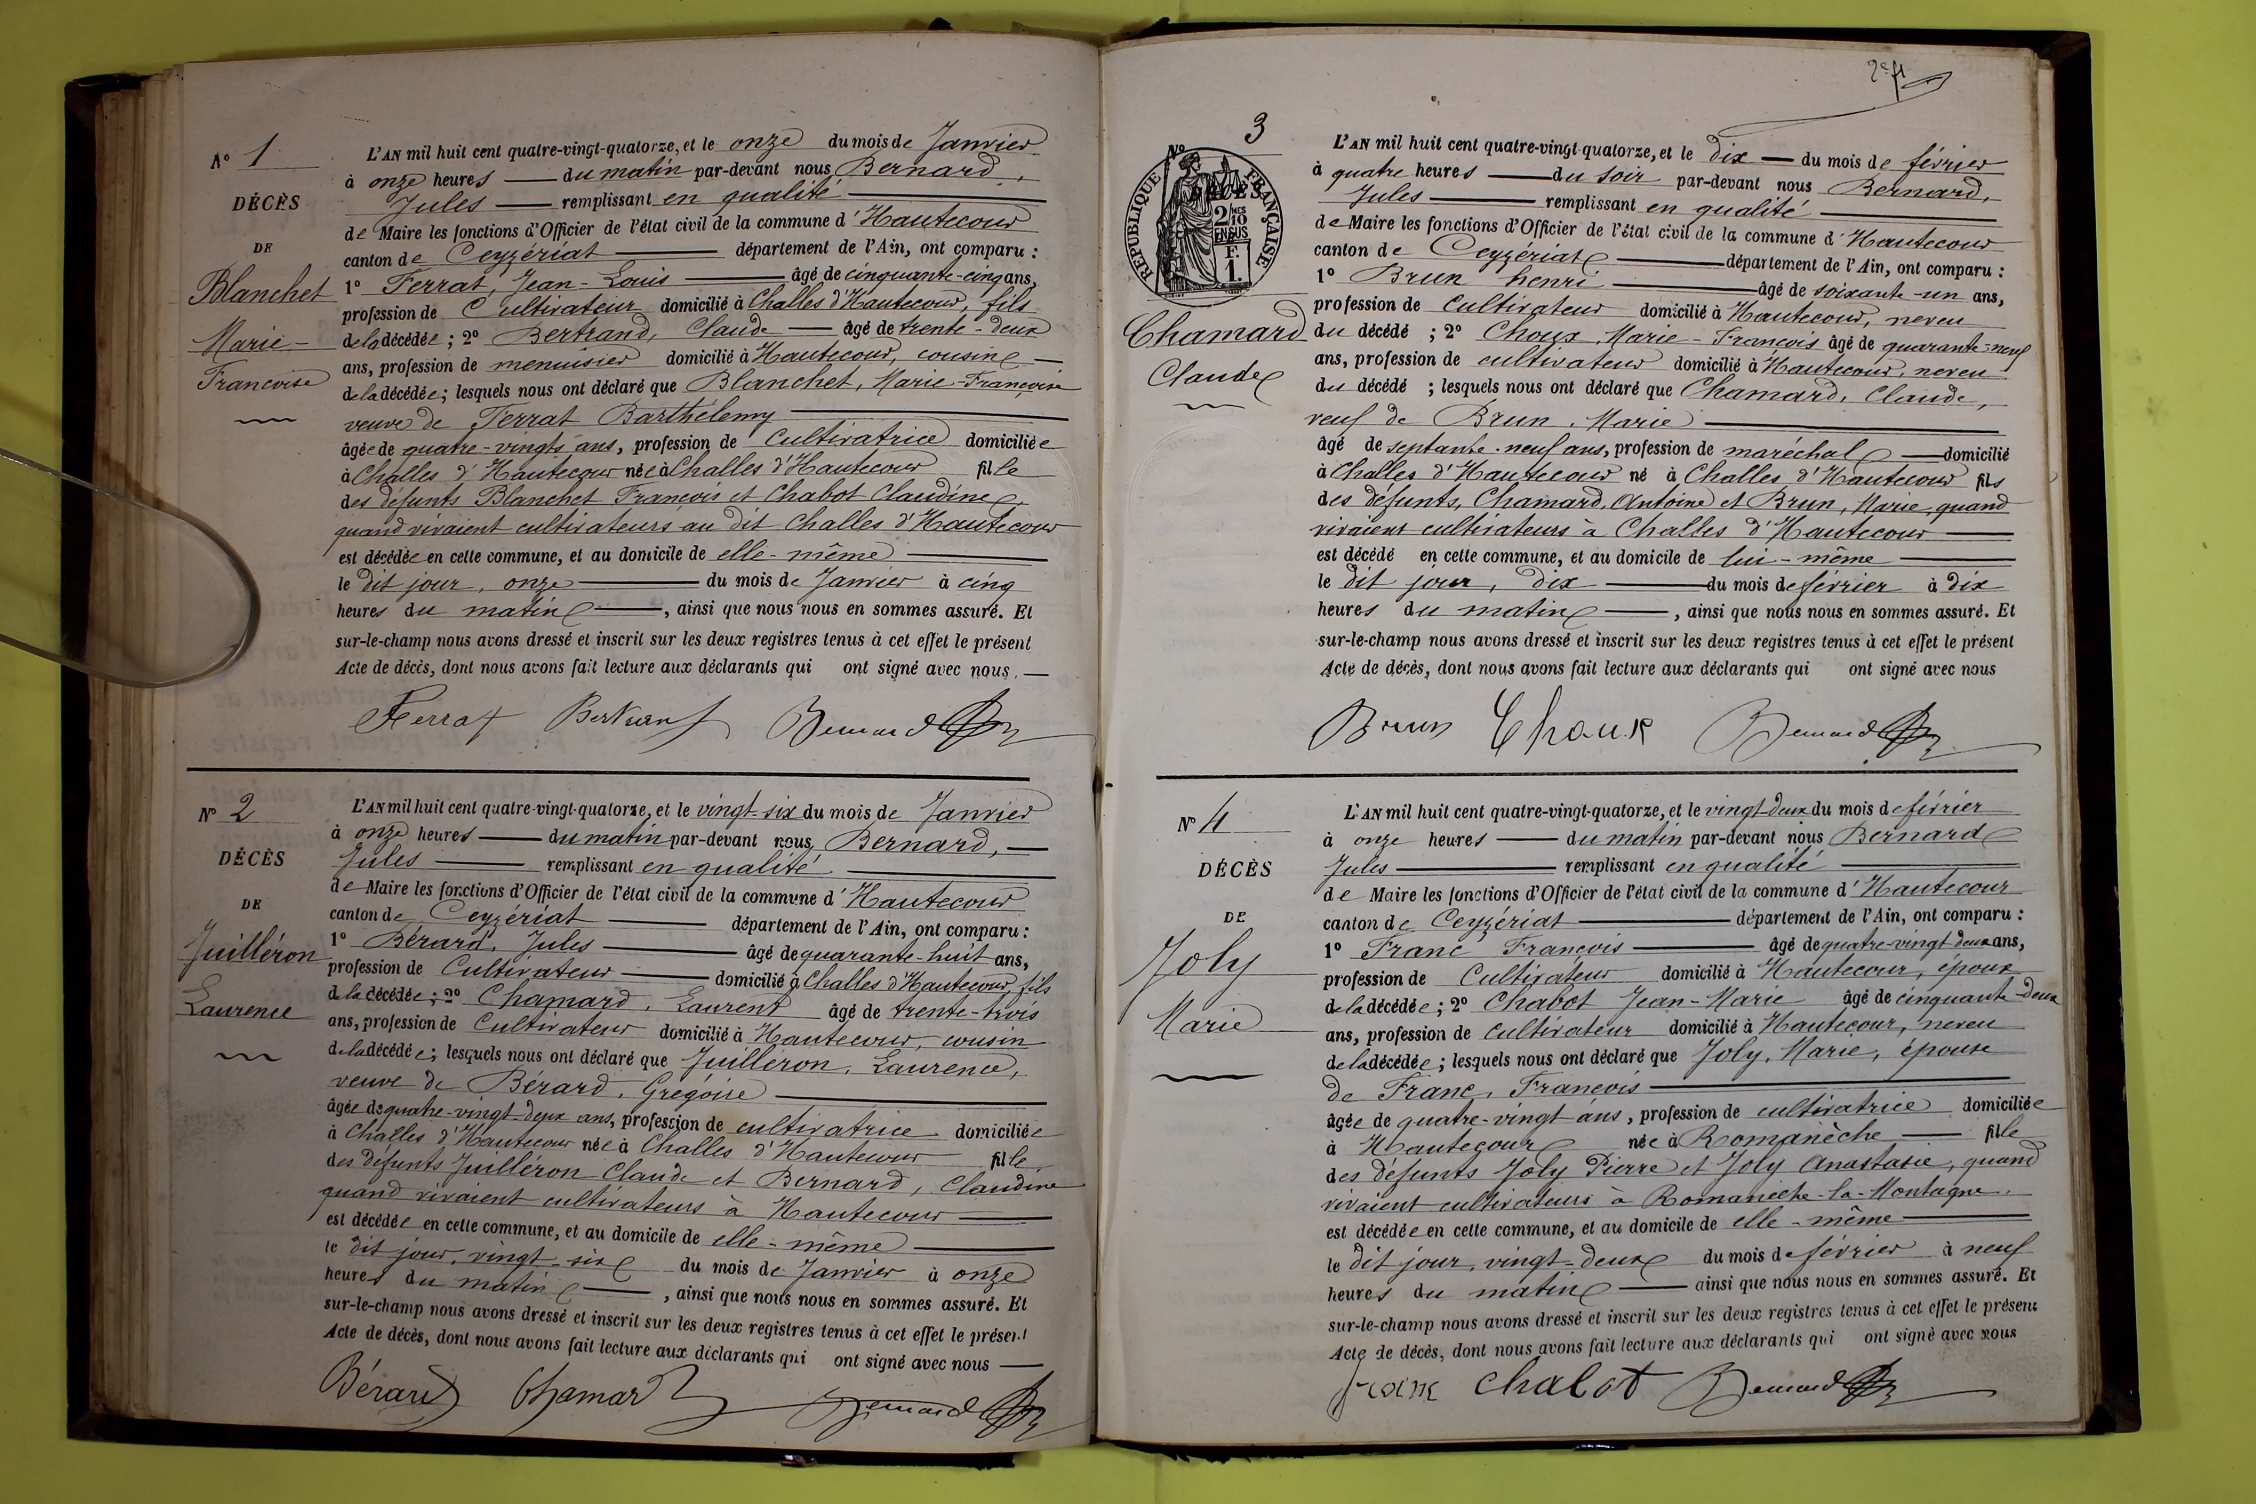 N° 1
DÉCÈS
DE
Blanchet
Marie-
Francoise
L'AN mil huit cent quatre-vingt-quatorze, et le onze du mois de Janvier
à onze heures du matin par-devant nous Bernard,
Jules remplissant en qualité
de Maire les fonctions d'Officier de l'état civil de la commune d'Hautecour
canton de Ceyzériat département de l'Ain, ont comparu :
1° Ferrat, Jean-Louis âgé de cinquante-cinq ans,
profession de Cultivateur domicilié à Challes d'Hautecour, fils
de la décédée ; 2° Bertrand, Claude âgé de trente-deux
ans, profession de menuisier domicilié à Hautecour, cousin
de la décédée ; lesquels nous ont déclaré que Blanchet, Marie-Françoise
veuve de Ferrat Barthélemy
âgée de quatre-vingts ans, profession de Cultivatrice domiciliée
à Challes d'Hautecour née à Challes d'Hautecour fille
des défunts Blanchet François et Chabot Claudine,
quand vivaient cultivateurs au dit Challes d'Hautecour
est décédée en cette commune, et au domicile de elle-même
le dit jour, onze du mois de Janvier à cinq
heures du matin, ainsi que nous nous en sommes assuré. Et
sur-le-champ nous avons dressé et inscrit sur les deux registres tenus à cet effet le présent
Acte de décès, dont nous avons fait lecture aux déclarants qui ont signé avec nous.
Ferrat Bertrand Bernard
N° 2
DÉCÈS
DE
Juilléron
Laurence
L'AN mil huit cent quatre-vingt-quatorze, et le vingt-six du mois de Janvier
à onze heures du matin par-devant nous Bernard,
Jules remplissant en qualité
de Maire les fonctions d'Officier de l'état civil de la commune d'Hautecour
canton de Ceyzériat département de l'Ain, ont comparu :
1° Bérard, Jules âgé de quarante-huit ans,
profession de Cultivateur domicilié à Challes d'Hautecour, fils
de la décédée ; 2° Chamard, Laurent âgé de trente-trois
ans, profession de Cultivateur domicilié à Hautecour, cousin
de la décédée ; lesquels nous ont déclaré que Juilléron, Laurence,
veuve de Bérard, Grégoire
âgée de quatre-vingt-deux ans, profession de cultivatrice domiciliée
à Challes d'Hautecour née à Challes d'Hautecour fille
des défunts Juilléron Claude et Bernard, Claudine
quand vivaient cultivateurs à Hautecour
est décédée en cette commune, et au domicile de elle-même
le dit jour, vingt-six du mois de Janvier à onze
heures du matin, ainsi que nous nous en sommes assuré. Et
sur-le-champ nous avons dressé et inscrit sur les deux registres tenus à cet effet le présent
Acte de décès, dont nous avons fait lecture aux déclarants qui ont signé avec nous
Bérard Chamard Bernard
N° 3
RÉPUBLIQUE FRANÇAISE
2/10 MES
EN SUS
F.
1.
Chamard
Claude
L'AN mil huit cent quatre-vingt-quatorze, et le dix du mois de février
à quatre heures du soir par-devant nous Bernard,
Jules remplissant en qualité
de Maire les fonctions d'Officier de l'état civil de la commune d'Hautecour
canton de Ceyzériat département de l'Ain, ont comparu :
1° Brun henri âgé de soixante-un ans,
profession de Cultivateur domicilié à Hautecour, neveu
du décédé ; 2° Choux, Marie-François âgé de quarante-neuf
ans, profession de cultivateur domicilié à Hautecour, neveu
du décédé ; lesquels nous ont déclaré que Chamard, Claude,
veuf de Brun, Marie
âgé de septante-neuf ans, profession de maréchal domicilié
à Challes d'Hautecour né à Challes d'Hautecour fils
des défunts, Chamard, Antoine et Brun, Marie, quand
vivaient cultivateurs à Challes d'Hautecour
est décédé en cette commune, et au domicile de lui-même
le dit jour, dix du mois de février à dix
heures du matin, ainsi que nous nous en sommes assuré. Et
sur-le-champ nous avons dressé et inscrit sur les deux registres tenus à cet effet le présent
Acte de décès, dont nous avons fait lecture aux déclarants qui ont signé avec nous
Brun Choux Bernard
N° 4
DÉCÈS
DE
Joly
Marie
L'AN mil huit cent quatre-vingt-quatorze, et le vingt-deux du mois de février
à onze heures du matin par-devant nous Bernard
Jules remplissant en qualité
de Maire les fonctions d'Officier de l'état civil de la commune d'Hautecour
canton de Ceyzériat département de l'Ain, ont comparu :
1° Franc François âgé de quatre-vingt deux ans,
profession de Cultivateur domicilié à Hautecour, époux
de la décédée ; 2° Chabot Jean-Marie âgé de cinquante-deux
ans, profession de cultivateur domicilié à Hautecour, neveu
de la décédée ; lesquels nous ont déclaré que Joly, Marie, épouse
de Franc, François
âgée de quatre-vingt ans, profession de cultivatrice domiciliée
à Hautecour née à Romanèche fille
des défunts Joly Pierre et Joly Anastasie, quand
vivaient cultivateurs à Romanèche-la-Montagne.
est décédée en cette commune, et au domicile de elle-même
le dit jour, vingt-deux du mois de février à neuf
heures du matin ainsi que nous nous en sommes assuré. Et
sur-le-champ nous avons dressé et inscrit sur les deux registres tenus à cet effet le présent
Acte de décès, dont nous avons fait lecture aux déclarants qui ont signé avec nous
Franc Chabot Bernard